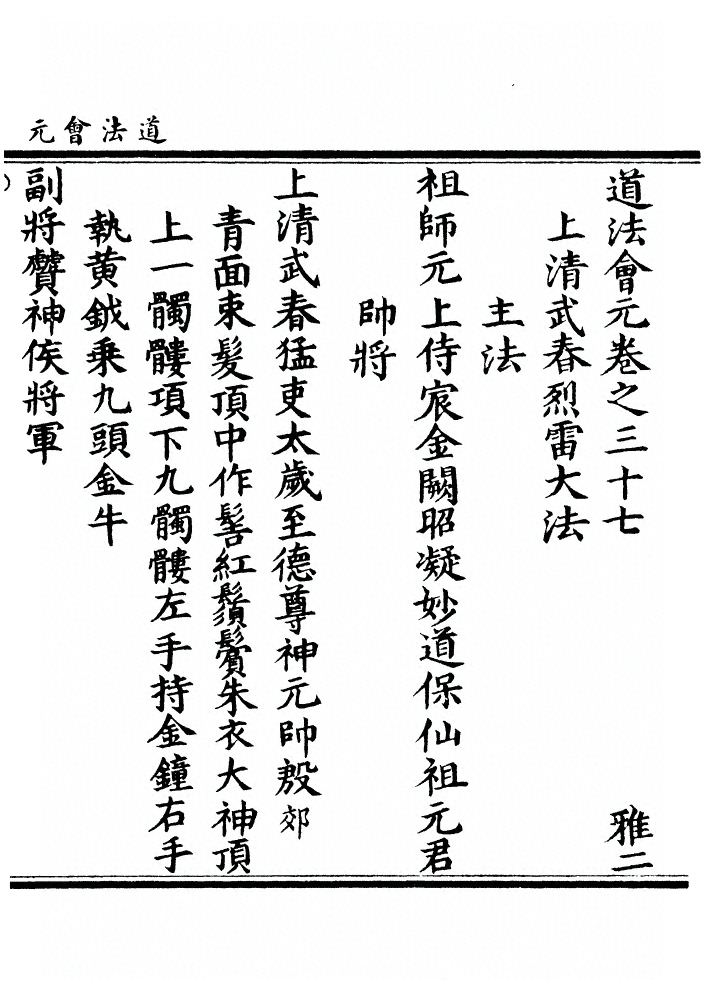 道法會元
道法會元卷之三十七
雅二
上清武春烈雷大法
主法
祖師元上侍宸金闕昭凝妙道保仙祖元君
帥將
上清武春猛吏太歲至德尊神元帥殷郊
青面束髮頂中作髻紅鬚鬢朱衣大神頂
上一髑髏項下九髑髏左手持金鐘右手
執黃鉞乘九頭金牛
副將贇神侯將軍